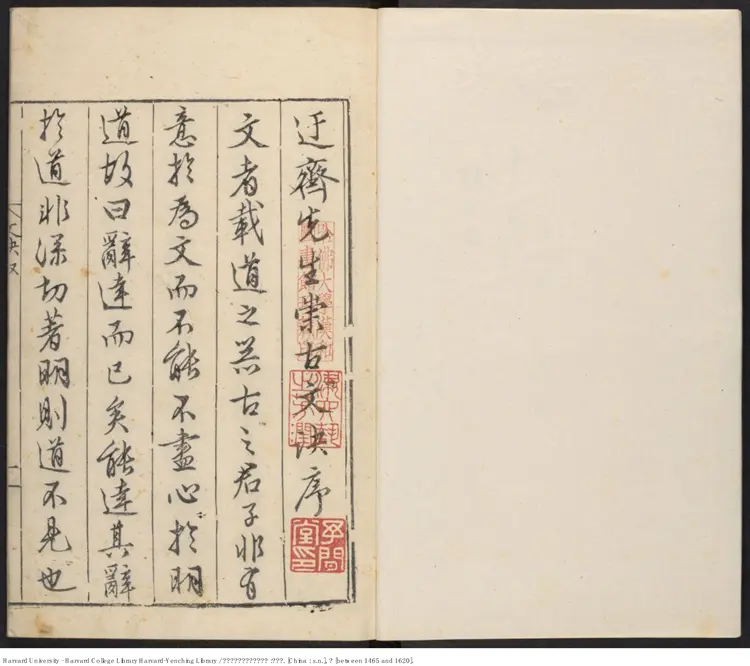 迂齋先生崇古文訣序
文者載道之器古之君子非有
意於為文而不能不盡心於明
道故曰辭達而已矣能達其辭
於道非深切著明則道不見也
Harvard University - Harvard College Library Harvard-Yenching Library / ???????????? :???. [China : s.n.], ? [between 1465 and 1620].